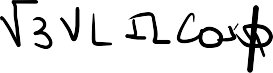 √3 VL IL Cosϕ